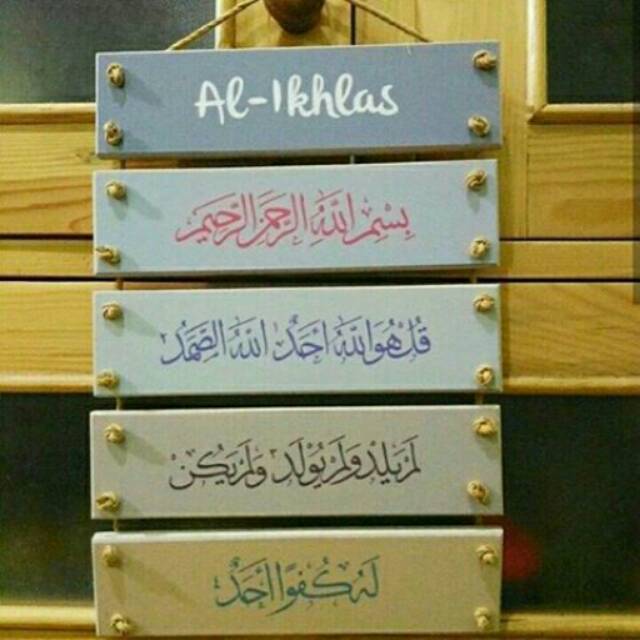 Al-Ikhlas
بِسْمِ اللَّهِ الرَّحْمَٰنِ الرَّحِيمِ
قُلْ هُوَ اللَّهُ أَحَدٌ اللَّهُ الصَّمَدُ
لَمْ يَلِدْ وَلَمْ يُولَدْ وَلَمْ يَكُنْ
لَهُ كُفُوًا أَحَدٌ